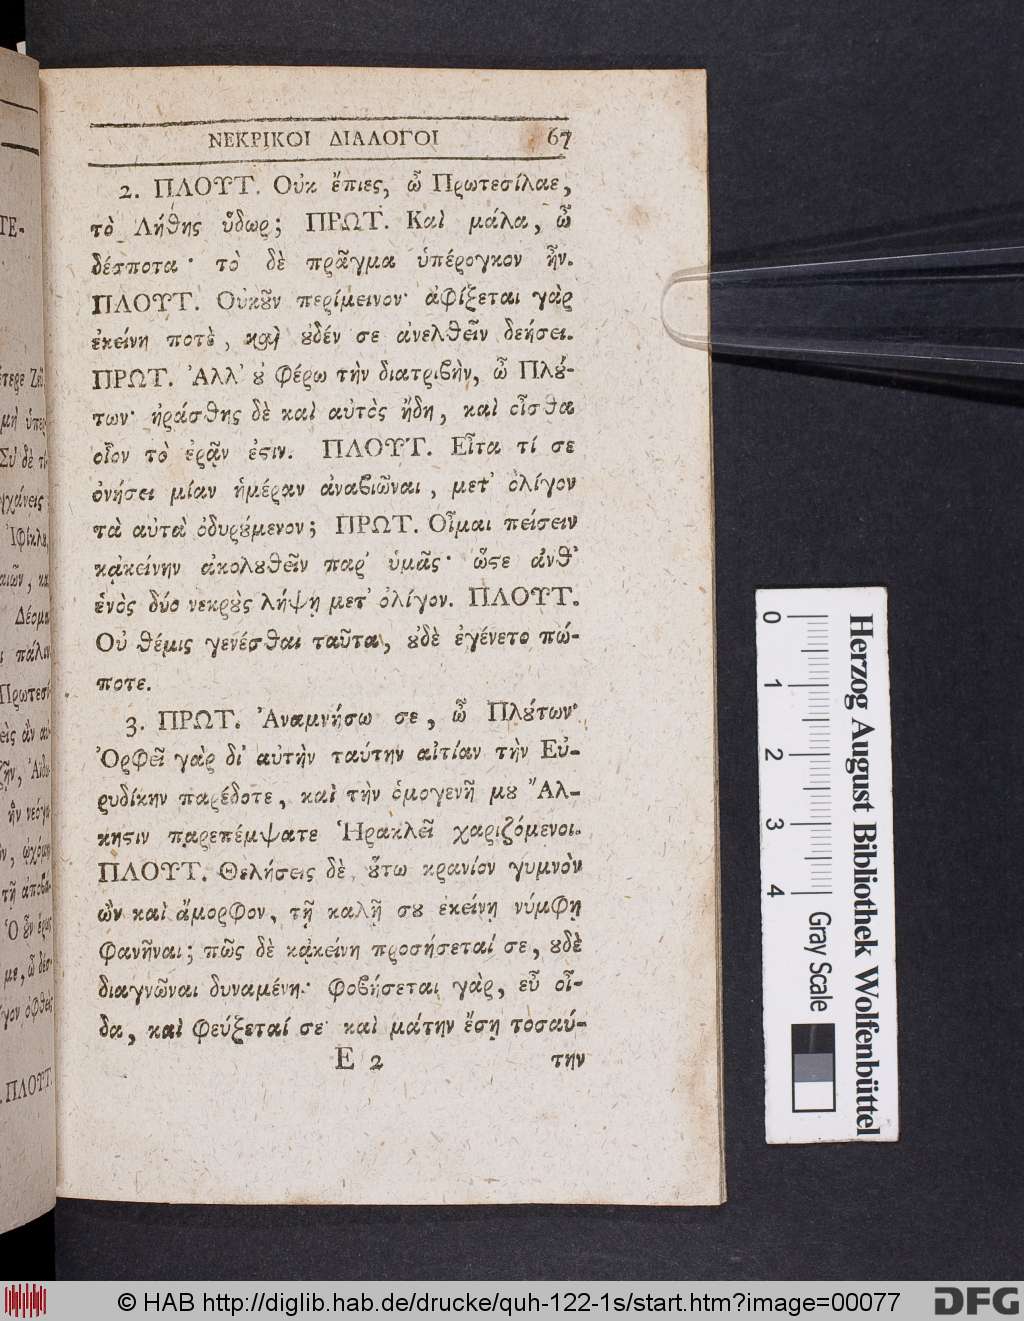 ΝΕΚΡΙΚΟΙ ΔΙΑΛΟΓΟΙ 67
2. ΠΛΟΥΤ. Οὐκ ἔπιες, ὦ Πρωτεσίλαε,
τὸ Λήθης ὕδωρ; ΠΡΩΤ. Καὶ μάλα, ὦ
δέσποτα· τὸ δὲ πρᾶγμα ὑπέρογκον ἦν.
ΠΛΟΥΤ. Οὐκȣ͂ν περίμεινον· ἀφίξεται γὰρ
ἐκείνη ποτὲ, καὶ ȣδέν σε ἀνελθεῖν δεήσει.
ΠΡΩΤ. Ἀλλ' ȣ φέρω τὴν διατριβὴν, ὦ Πλȣ́-
των· ἠράσθης δὲ καὶ αὐτὸς ἤδη, καὶ οἶσθα
οἷον τὸ ἐρᾷν ἐϛιν. ΠΛΟΥΤ. Εἶτα τί σε
ὀνήσει μίαν ἡμέραν ἀναβιῶναι, μετ' ὀλίγον
τὰ αὐτὰ ὀδυρȣ́μενον; ΠΡΩΤ. Οἶμαι πείσειν
κᾀκείνην ἀκολȣθεῖν παρ' ὑμᾶς· ὥϛε ἀνθ'
ἑνὸς δύο νεκρȣ̀ς λήψῃ μετ' ὀλίγον. ΠΛΟΥΤ.
Οὐ θέμις γενέσθαι ταῦτα, ȣδὲ ἐγένετο πώ-
ποτε.
3. ΠΡΩΤ. Ἀναμνήσω σε, ὦ Πλȣ́των·
Ὀρφεῖ γὰρ δι' αὐτὴν ταύτην αἰτίαν τὴν Εὐ-
ρυδίκην παρέδοτε, καὶ τὴν ὁμογενῆ μȣ Ἄλ-
κηϛιν παρεπέμψατε Ἡρακλεῖ χαριζόμενοι.
ΠΛΟΥΤ. Θελήσεις δὲ ȣ̔́τω κρανίον γυμνὸν
ὢν καὶ ἄμορφον, τῇ καλῇ σȣ ἐκείνῃ νύμφῃ
φανῆναι; πῶς δὲ κᾀκείνη προσήσεταί σε, ȣδὲ
διαγνῶναι δυναμένη· φοβήσεται γὰρ, εὖ οἶ-
δα, καὶ φεύξεταί σε· καὶ μάτην ἔσῃ τοσαύ-
E 2 την
ΤΕ-
Δέομαι
πάλιν
ΠΛΟΥΤ.
0 1 2 3 4
Gray Scale
Herzog August Bibliothek Wolfenbüttel
© HAB http://diglib.hab.de/drucke/quh-122-1s/start.htm?image=00077
DFG